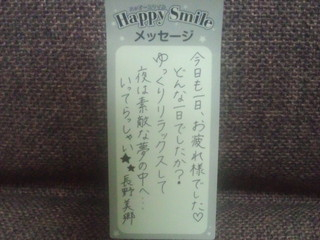 Happy Smile
メッセージ
今日も一日、お疲れ様でした♡
どんな一日でしたか?
ゆっくりリラックスして
夜は素敵な夢の中へ…
いってらっしゃい★★
長野美郷